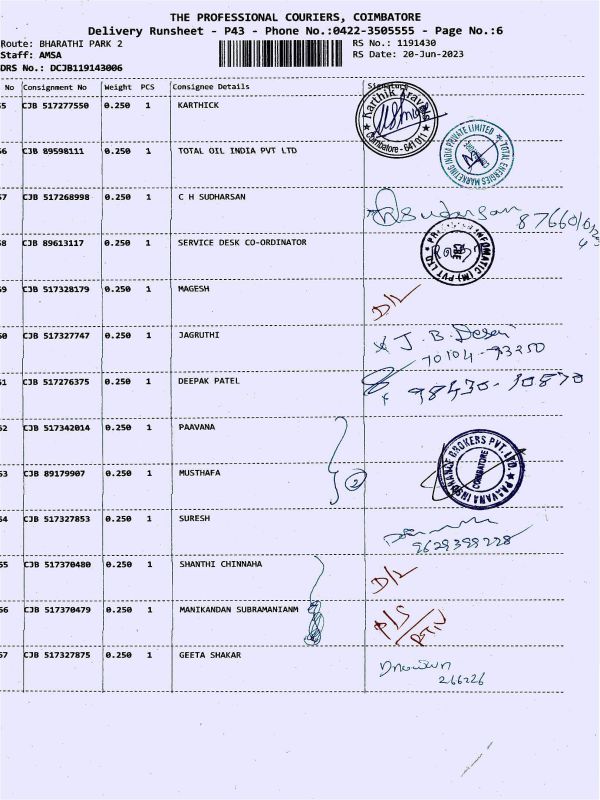 THE PROFESSIONAL COURIERS, COIMBATORE
Delivery Runsheet - P43 - Phone No.:0422-3505555 - Page No.:6
Route: BHARATHI PARK 2 RS No.: 1191430
Staff: AMSA RS Date: 20-Jun-2023
DRS No.: DCJB119143006
No Consignment No Weight PCS Consignee Details Signature
5 CJB 517277550 0.250 1 KARTHICK Karthik Travels Coimbatore - 641 01
6 CJB 89598111 0.250 1 TOTAL OIL INDIA PVT LTD TOTAL ENERGIES MARKETING INDIA PRIVATE LIMITED
7 CJB 517268998 0.250 1 C H SUDHARSAN Sudarsan
8 CJB 89613117 0.250 1 SERVICE DESK CO-ORDINATOR
9 CJB 517328179 0.250 1 MAGESH D/L
0 CJB 517327747 0.250 1 JAGRUTHI J. B. Desai
70104-93250
1 CJB 517276375 0.250 1 DEEPAK PATEL 98430-10870
2 CJB 517342014 0.250 1 PAAVANA PAAVANA INSURANCE BROKERS PVT. LTD. COIMBATORE
3 CJB 89179907 0.250 1 MUSTHAFA 2
4 CJB 517327853 0.250 1 SURESH
9629399228
5 CJB 517370480 0.250 1 SHANTHI CHINNAHA D/L
6 CJB 517370479 0.250 1 MANIKANDAN SUBRAMANIANM P/S
RTN
7 CJB 517327875 0.250 1 GEETA SHAKAR
266226